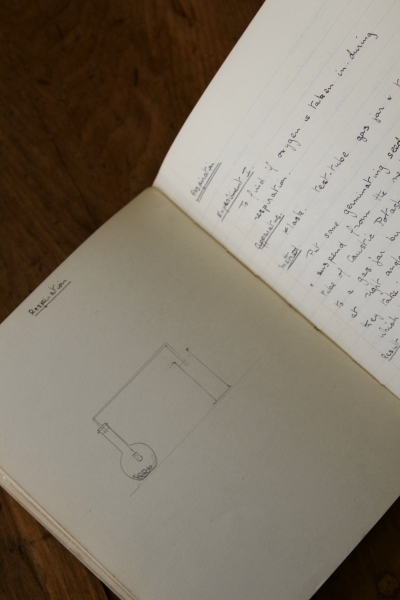 Respiration
Respiration
Experiment II
To find if oxygen is taken in during
respiration.
Apparatus Test-tube gas jar
flask.
Method Put some germinating seed
suspend from the
tube of Caustic Potash
to a gas jar by
at right angle
they take
which
Result